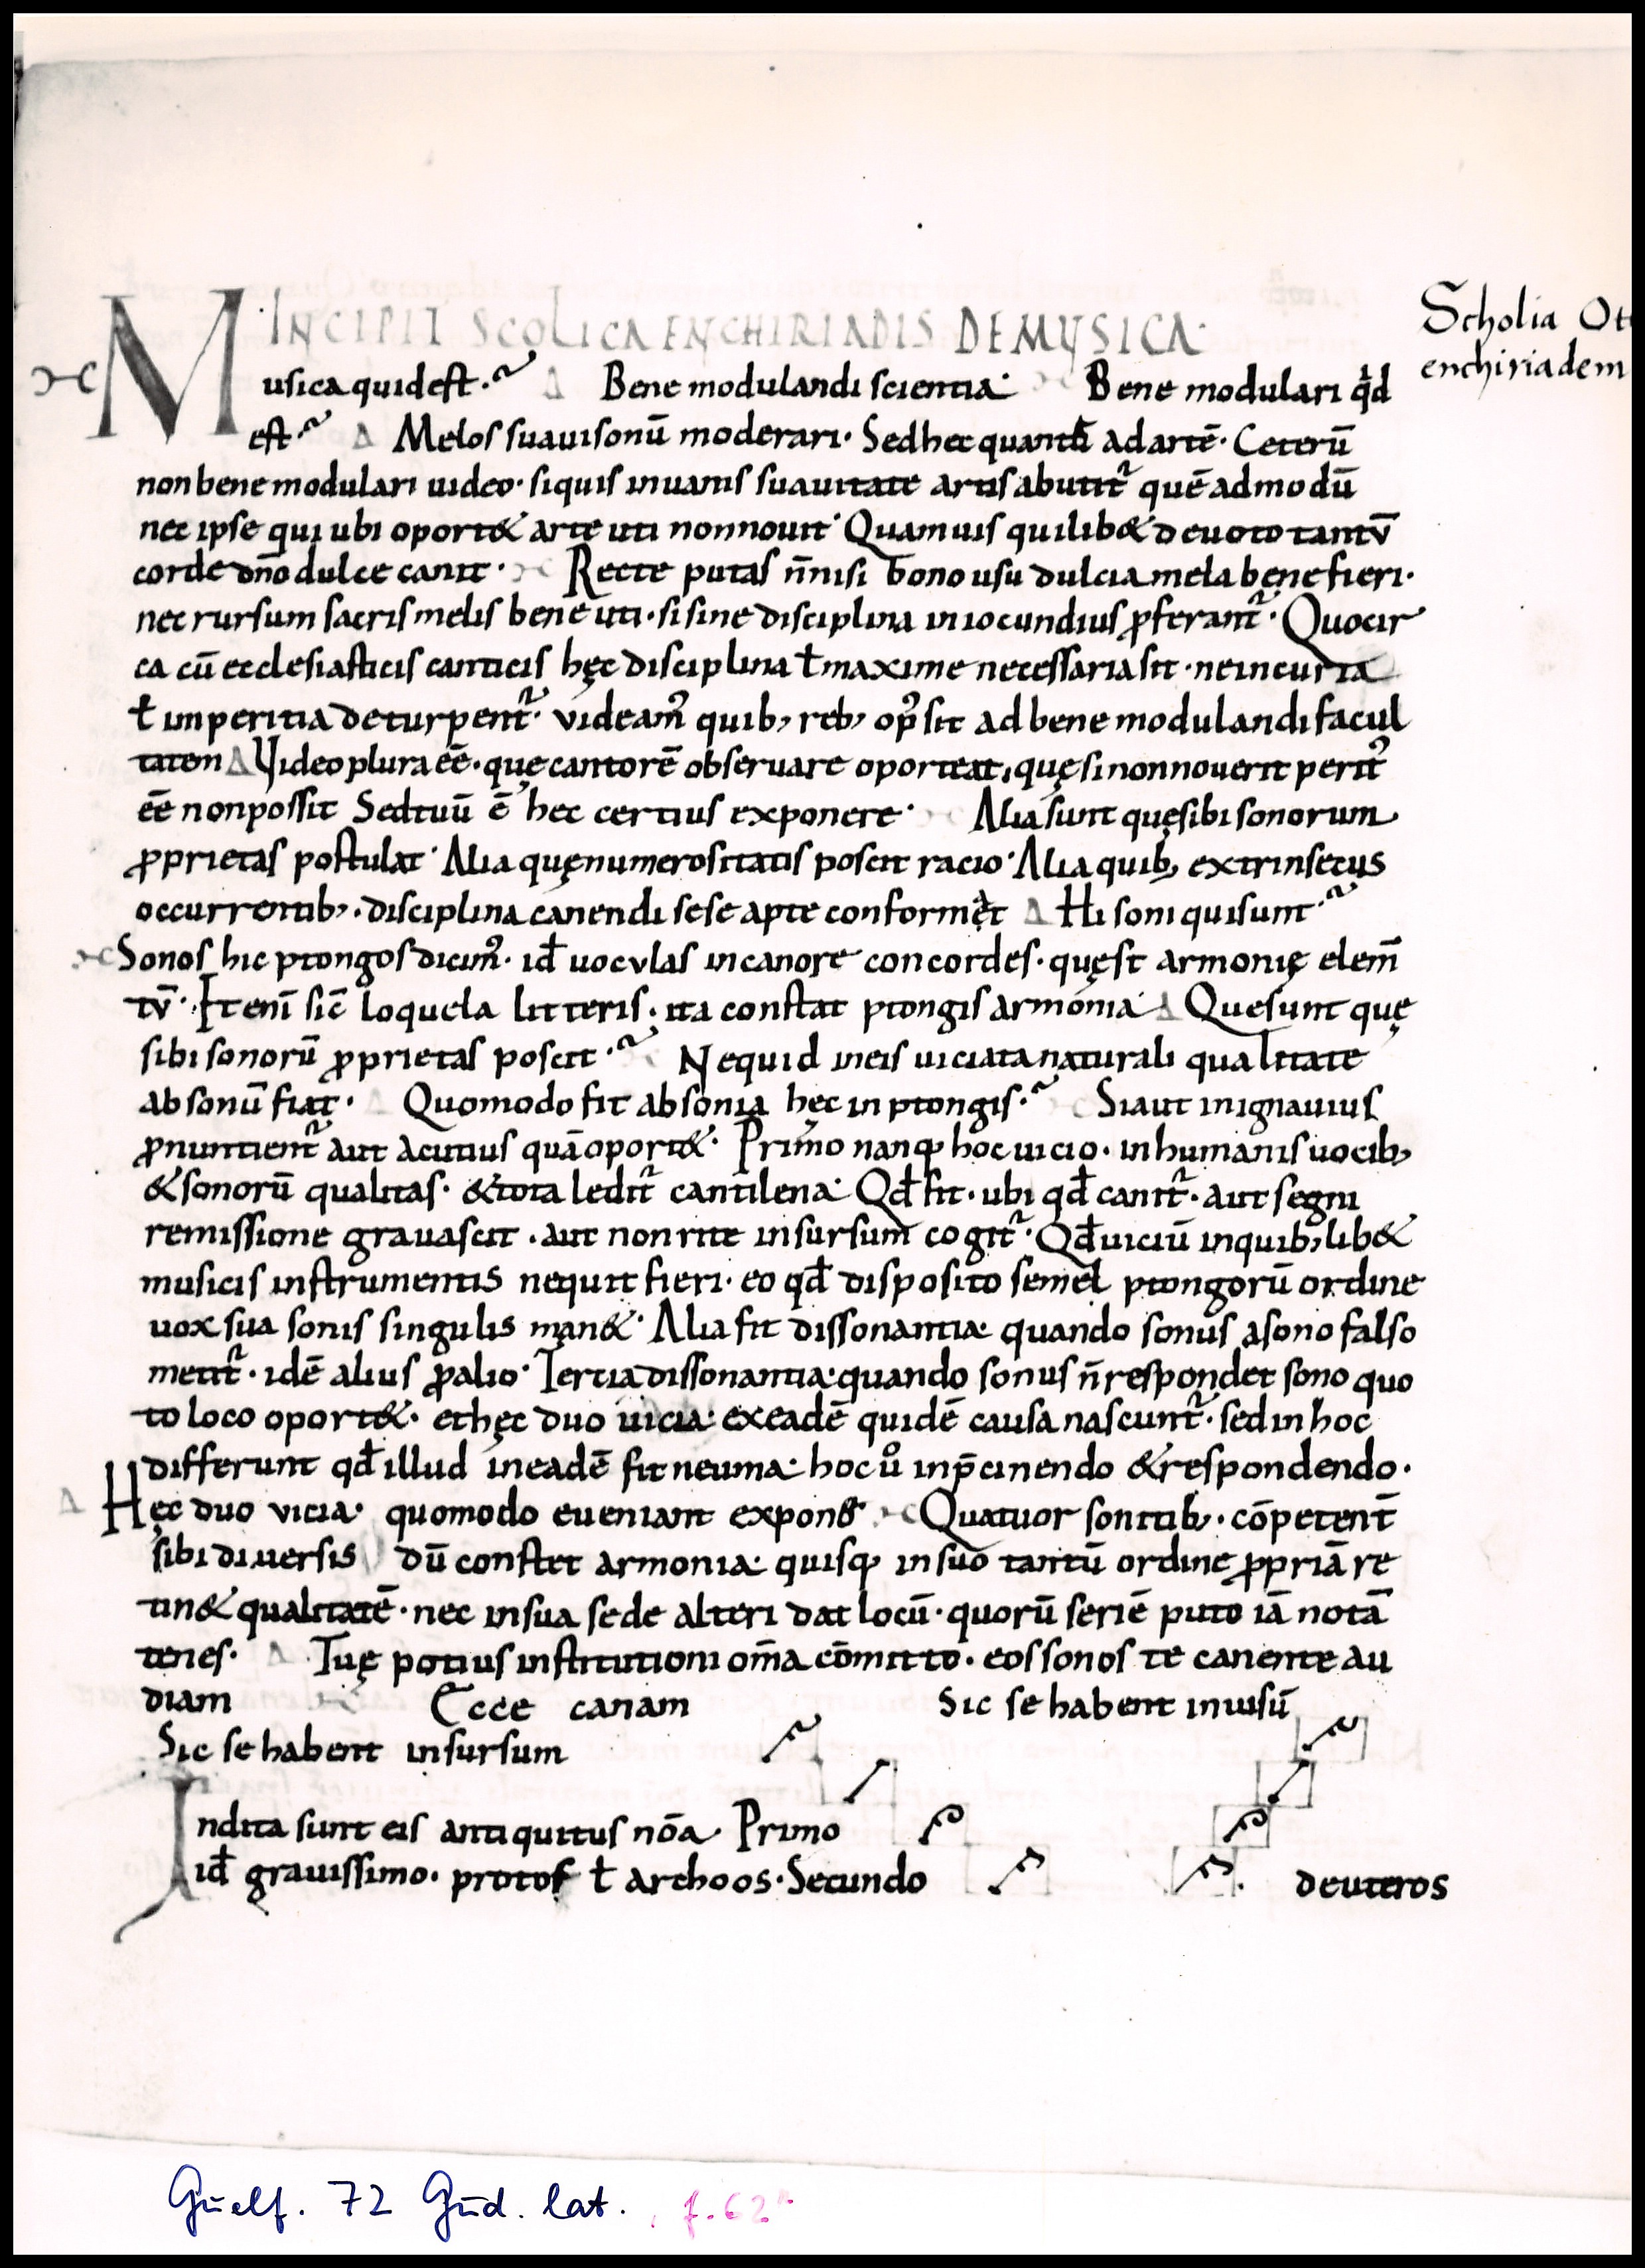 INCIPIT SCOLICA ENCHIRIADIS DE MUSICA·
Scholia Ot
enchiriadem
Musica quid est· Bene modulandi scientia· Bene modulari qd̄
est· Melos suauisonū moderari· Sed hec quantū ad artē· Ceterū
non bene modulari uideo· siquis in uanis suauitate artis abutit᷑ quē admodū
nec ipse qui ubi oport& arte uti non nouit· Quamuis quilib& deuoto tantū
corde dn̄o dulce canit· Recte putas n̄nisi bono usu dulcia mela bene fieri·
nec rursum sacris melis bene uti· si sine disciplina iniocundius ꝓferant᷑· Quocir
ca cū ecclesiasticis canticis hęc disciplina ł maxime necessaria sit· ne incuria
ł imperitia deturpent᷑· videam᷒ quib; reb; op᷒ sit ad bene modulandi facul
tatem Video plura eē· quę cantorē obseruare oporteat, quę si non nouerit perit᷒
eē non possit Sed tuū ē hec certius exponere· Alia sunt quę sibi sonorum
ꝓprietas postulat· Alia quę numerositatis poscit racio· Alia quib; extrinsecus
occurrentib;· disciplina canendi sese apte conformet Hi soni qui sunt
Sonos hic ptongos dicim᷒· id̄ uoculas in canore concordes· quę st armonię elem̄
tū· It enī sic̄ loquela litteris· ita constat ptongis armonia Que sunt quę
sibi sonorū ꝓprietas poscit· Ne quid in eis uiciata naturali qualitate
absonū fiat· Quomodo fit absonia hęc in ptongis· Si aut in ignauius
ꝓnuntient᷑ aut acutius quā oport&· Primo nanq; hoc uicio· in humanis uocib;
& sonorū qualitas· & tota ledit᷑ cantilena· Qd̄ fit· ubi qd̄ canit᷑· aut segni
remissione grauascit· aut non rite in sursum cogit᷑· Qd̄ uiciū in quib;lib&
musicis instrumentis nequit fieri· eo qd̄ disposito semel ptongorū ordine
uox sua sonis singulis man&· Alia fit dissonantia· quando sonus a sono falso
metit᷑· idē alius ꝓ alio· Tercia dissonantia· quando sonus n̄ respondet sono quo
to loco oport&· et hęc duo uicia· ex eadē quidē causa nascunt᷑· sed in hoc
differunt qd̄ illud in eadē fit neuma· hoc uͦ in p̄cinendo & respondendo·
Hęc duo vicia· quomodo eueniant expon᷒· Quatuor sonitib;· cōpetent̄
sibi diuersis dū constet armonia· quisq; in suo tantū ordine ꝓpriā re
tin& qualitatē· nec in sua sede alteri dat locū· quorū seriē puto iā notā
tenes· Tuę potius institutioni om̄a cōmitto· eos sonos te canente au
diam Ecce canam Sic se habent in iusū
Sic se habent in sursum
Indita sunt eis antiquitus nōa Primo
id̄ grauissimo· protos ł archoos· Secundo deuteros
Guelf. 72 Gud. lat. f. 62r